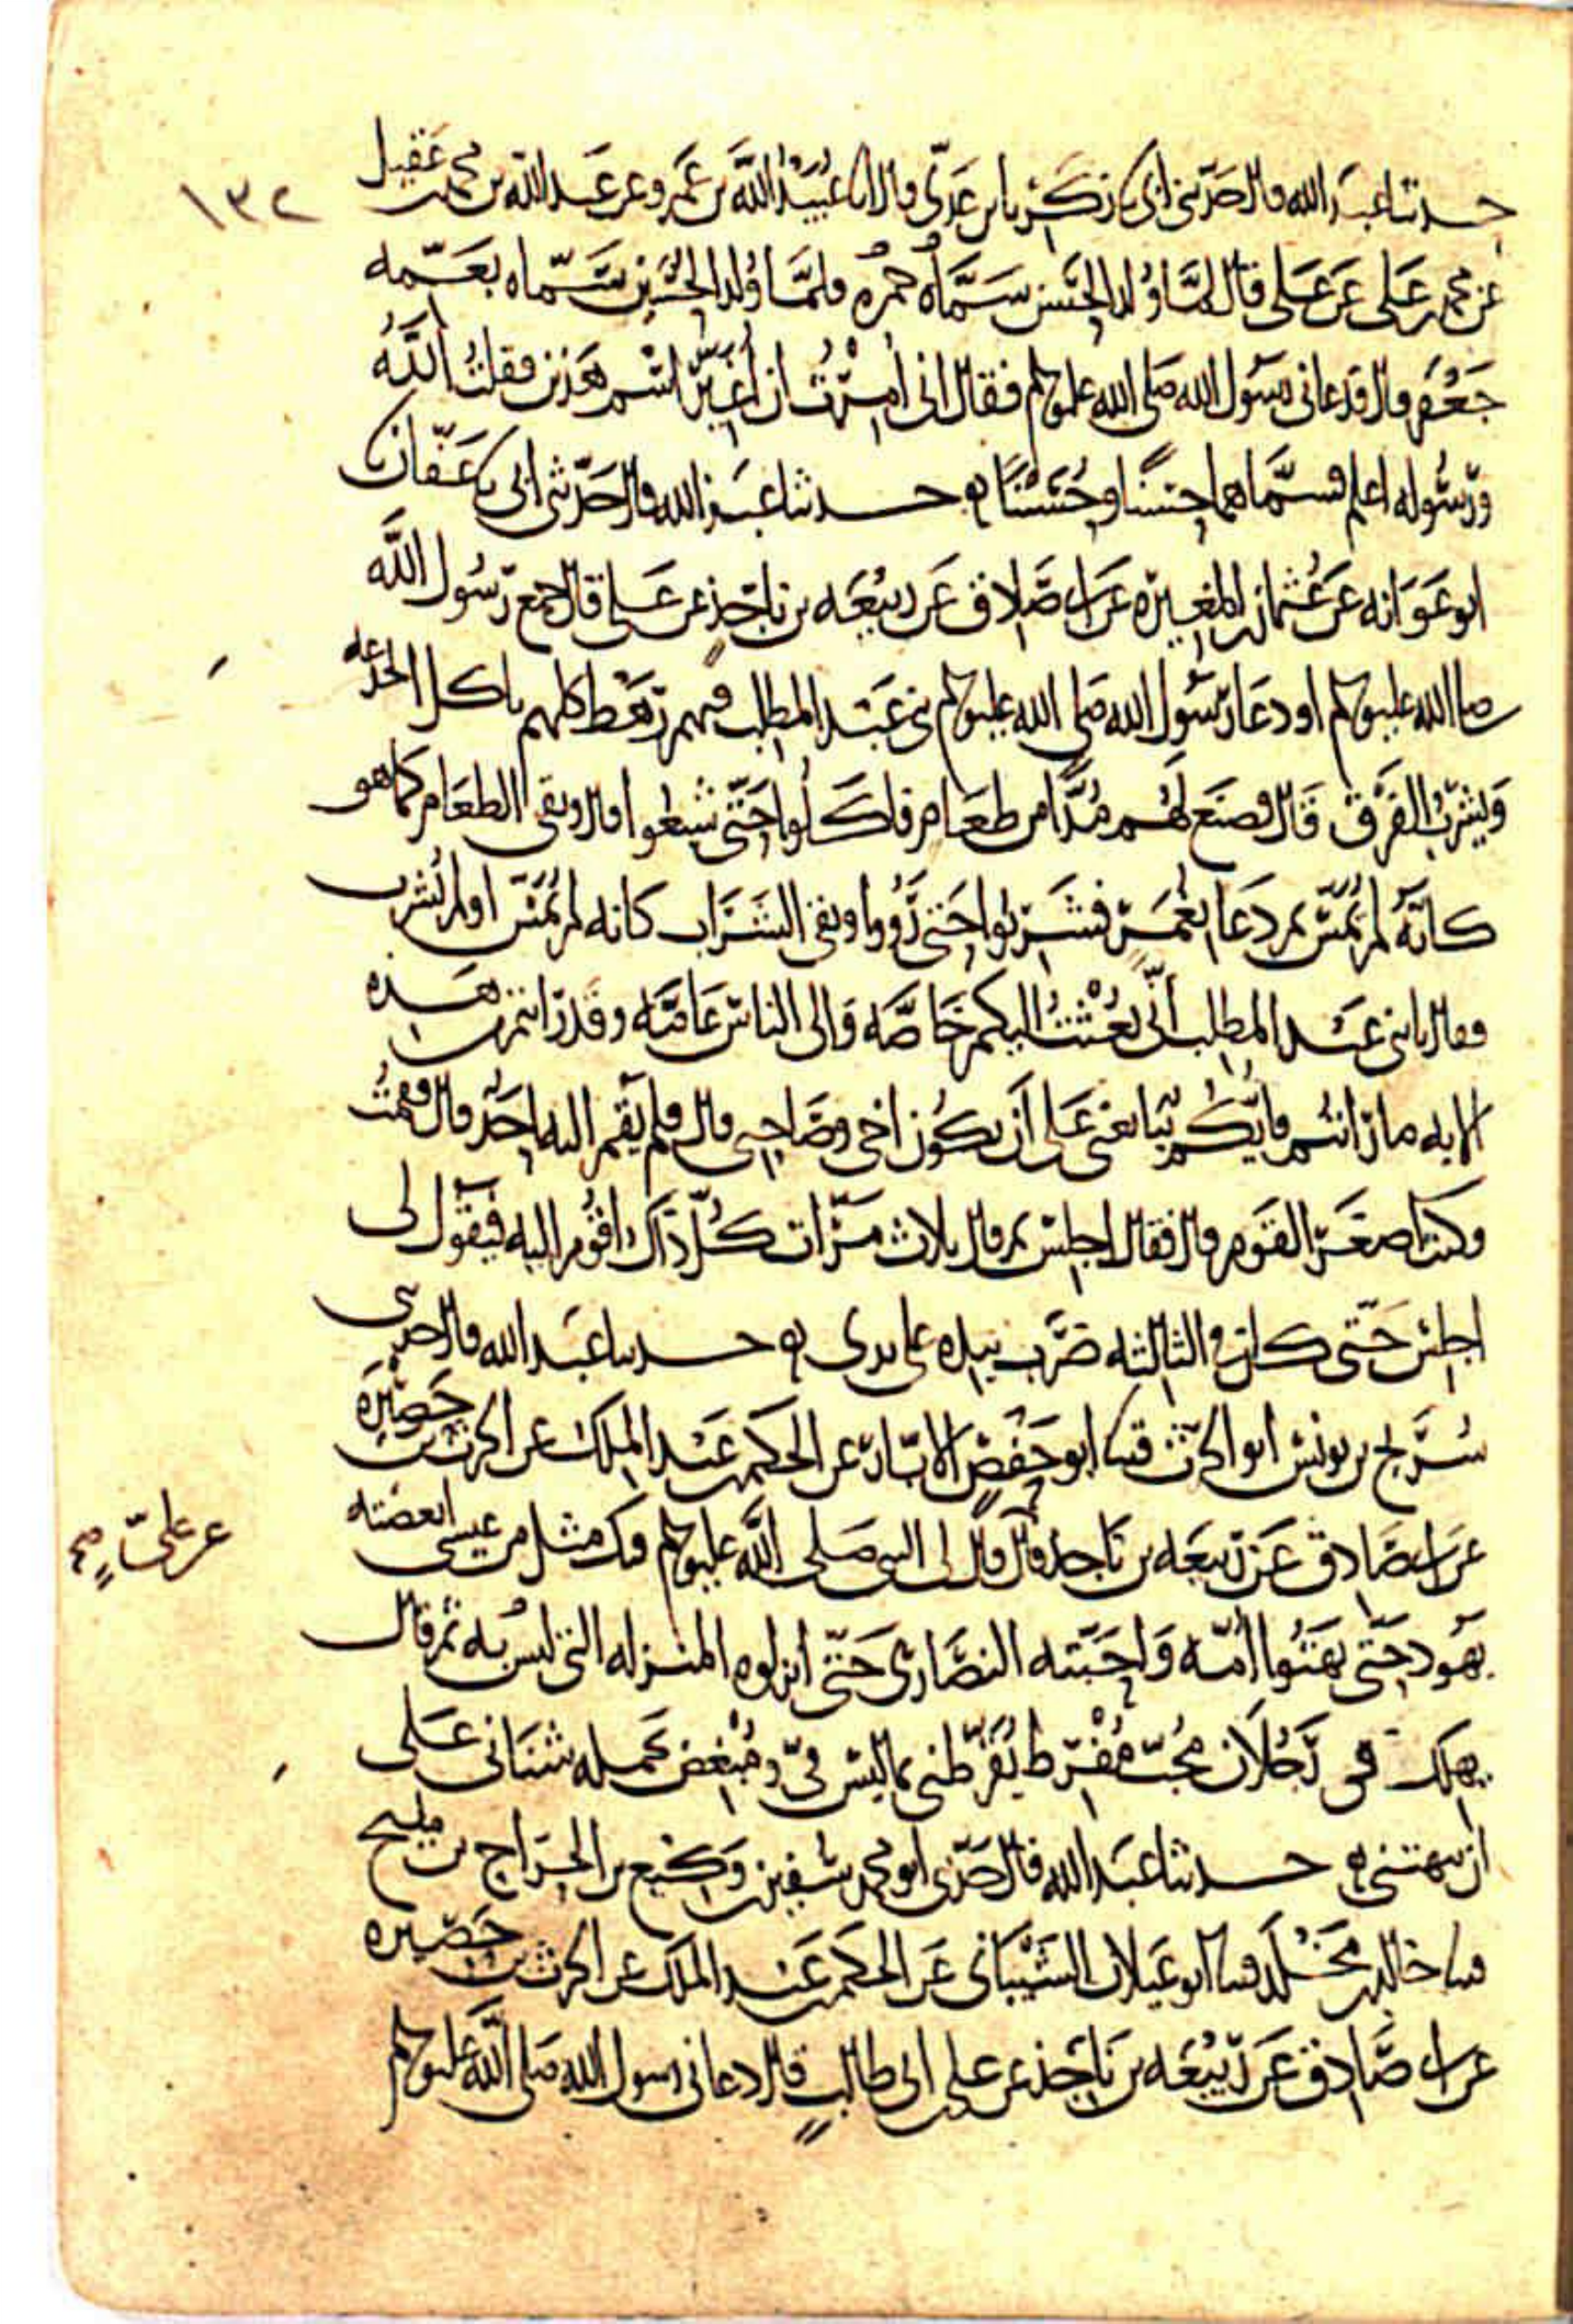 ١٣٢
حدثنا عبد الله قال حدثني ابي نا زكريا بن عدي قال انا عبيد الله بن عمرو عن عبد الله بن محمد بن عقيل
عن محمد بن علي عن علي قال لما ولد الحسن سماه حمزه فلما ولد الحسين سماه بعمه
جعفر قال فدعاني رسول الله صلى الله عليه وسلم فقال اني أمرت ان أغير اسم هذين فقلت الله
ورسوله اعلم فسماهما حسنا وحسينا ه حدثنا عبد الله قال حدثني ابي نا عفان نا
ابو عوانه عن عثمان بن المغيره عن ابي صادق عن ربيعه بن ناجذ عن علي قال جمع رسول الله
صلى الله عليه وسلم او دعا رسول الله صلى الله عليه وسلم بني عبد المطلب فيهم رهط كلهم ياكل الجذعه
ويشرب الفرق قال فصنع لهم مدا من طعام فاكلوا حتى شبعوا قال وبقي الطعام كما هو
كانه لم يمس ثم دعا بغمر فشربوا حتى رووا وبقي الشراب كانه لم يمس او لم يشرب
فقال يا بني عبد المطلب اني بعثت اليكم خاصه والى الناس عامه وقد رايتم من هذه
الايه ما رايتم فايكم يبايعني على أن يكون اخي وصاحبي قال فلم يقم اليه احد قال فقمت
وكنت اصغر القوم قال فقال اجلس ثم قال ثلاث مرات كل ذاك اقوم اليه فيقول لي
اجلس حتى كان في الثالثه ضرب بيده على يدي ه حدثنا عبد الله قال حدثني
سريج بن يونس ابو الحرث قثنا ابو حفص الابار عن الحكم بن عبد الملك عن الحرث بن حصيره
عن ابي صادق عن ربيعه بن ناجذ قال قال لي النبي صلى الله عليه وسلم فيك مثل من عيسى ابغضته
عن علي صح
يهود حتى بهتوا أمه واحبته النصارى حتى انزلوه المنزله التي ليس به ثم قال
يهلك في رجلان محب مفرط يقرظني بما ليس في ومبغض يحمله شناني على
ان يبهتني ه حدثنا عبد الله قال حدثني ابو محمد سفين بن وكيع بن الجراح بن مليح
قثنا خالد بن مخلد قثنا ابو غيلان الشيباني عن الحكم بن عبد الملك عن الحرث بن حصيره
عن ابي صادق عن ربيعه بن ناجذ عن علي بن ابي طالب قال دعاني رسول الله صلى الله عليه وسلم